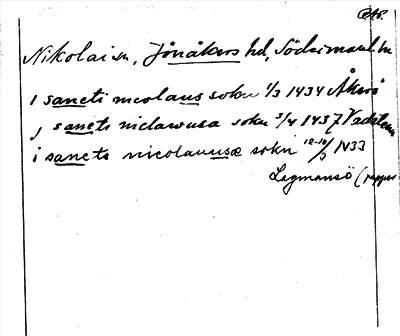 Nikolai sn, Jönåkers hd, Södermanl. ln
i sancti nicolaus sokn 1/3 1434 Åkerö
i sancti niclawusa sokn 3/4 1437 Vadstena
i sancte nicolaussæ sokn 12-16/3 1433
Lagmansö (papper